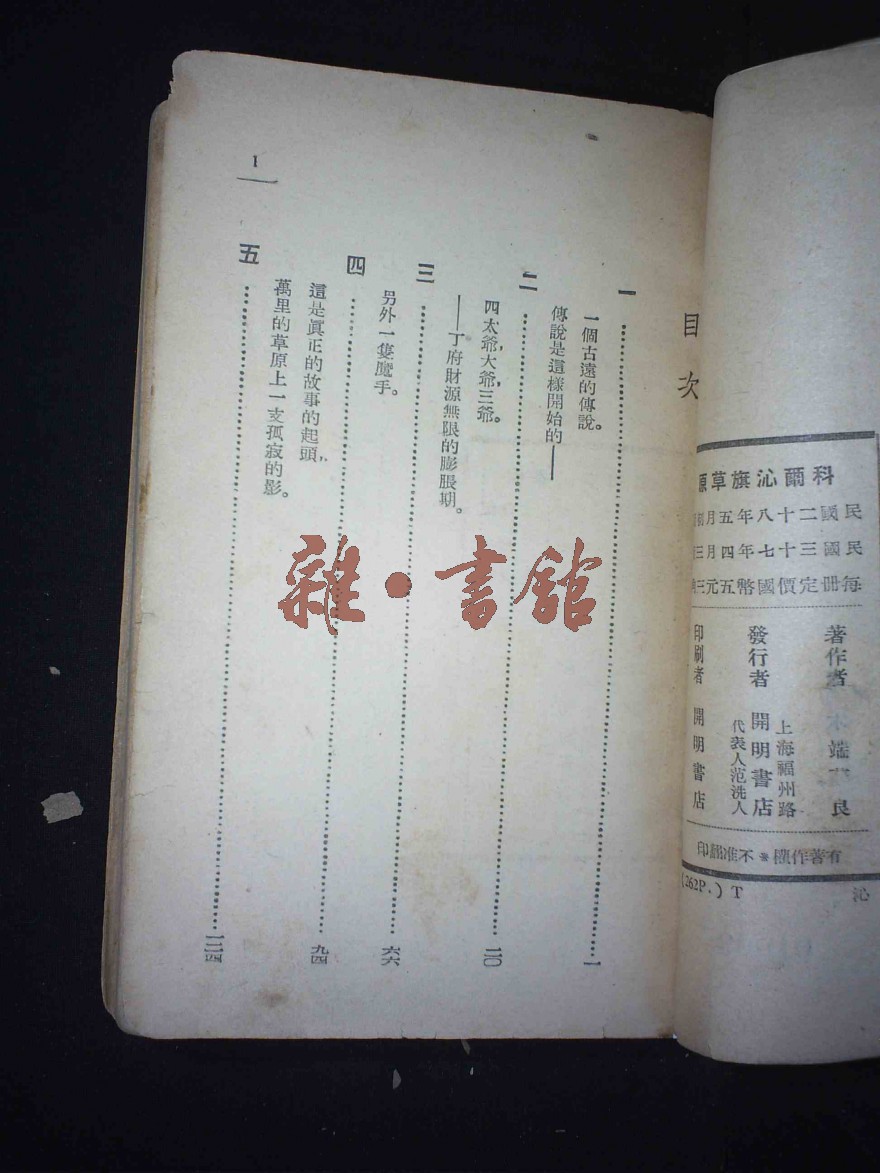 科爾沁旗草原
民國二十八年五月初
民國三十七年四月三
每冊定價國幣五元三
著作者 端 良
發行者 開明書店
上海福州路
代表人范洗人
印刷者 開明書店
有著作權＊不准翻印
(262P.) T
沁
目次
一……一
一個古遠的傳說。
傳說是這樣開始的——
二……二〇
四太爺，大爺，三爺。
——丁府財源無限的膨脹期。
三……六六
另外一隻魔手。
四……九四
這是眞正的故事的起頭，
萬里的草原上一支孤寂的影。
五……一二四
1
雜·書館